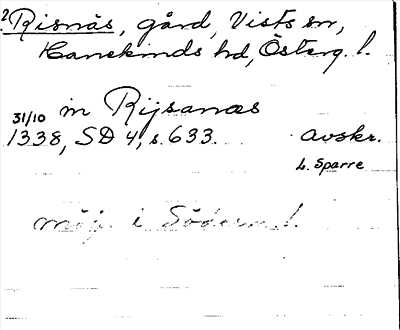 2 Risnäs, gård, Vists sn,
Hanekinds hd, Österg. l.
31/10 in Rijsanæs
1338, SD 4, s. 633. avskr.
L. Sparre
möjl. i Söderm. l.